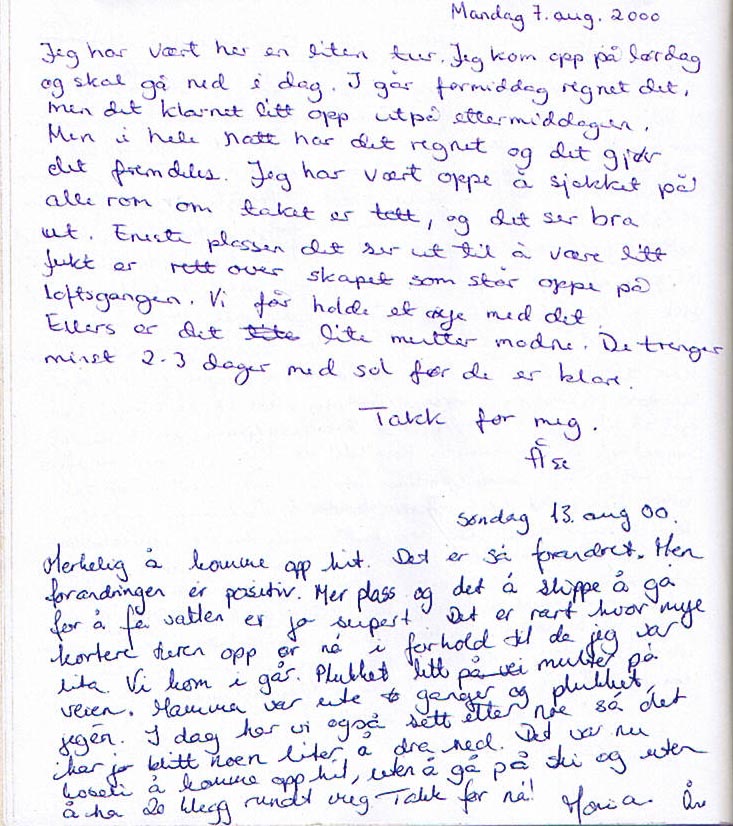 Mandag 7. aug. 2000
Jeg har vært her en liten tur. Jeg kom opp på lørdag
og skal gå ned i dag. I går formiddag regnet det,
men det klarnet litt opp utpå ettermiddagen.
Men i hele natt har det regnet og det gjør
det fremdeles. Jeg har vært oppe å sjekket på
alle rom om taket er tett, og det ser bra
ut. Eneste plassen det ser ut til å være litt
fukt er rett over skapet som står oppe på
loftsgangen. Vi får holde et øye med det.
Ellers er det lite multer modne. De trenger
minst 2-3 dager med sol før de er klare.
Takk for meg.
Åse
Søndag 13. aug 00.
Merkelig å komme opp hit. Det er så forandret. Men
forandringen er positiv. Mer plass og det å slippe å gå
for å få vatten er jo supert. Det er rart hvor mye
kortere turen opp er nå i forhold til da jeg var
lita. Vi kom i går. Plukket litt multer på
veien. Mamma var ute ganger og plukket
igjen. I dag har vi også sett etter noe så det
har jo blitt noen liter å dra ned. Det var nu
koseli å komme opp hit, uten å gå på ski og uten
å ha 20 klegg rundt meg. Takk for nå!